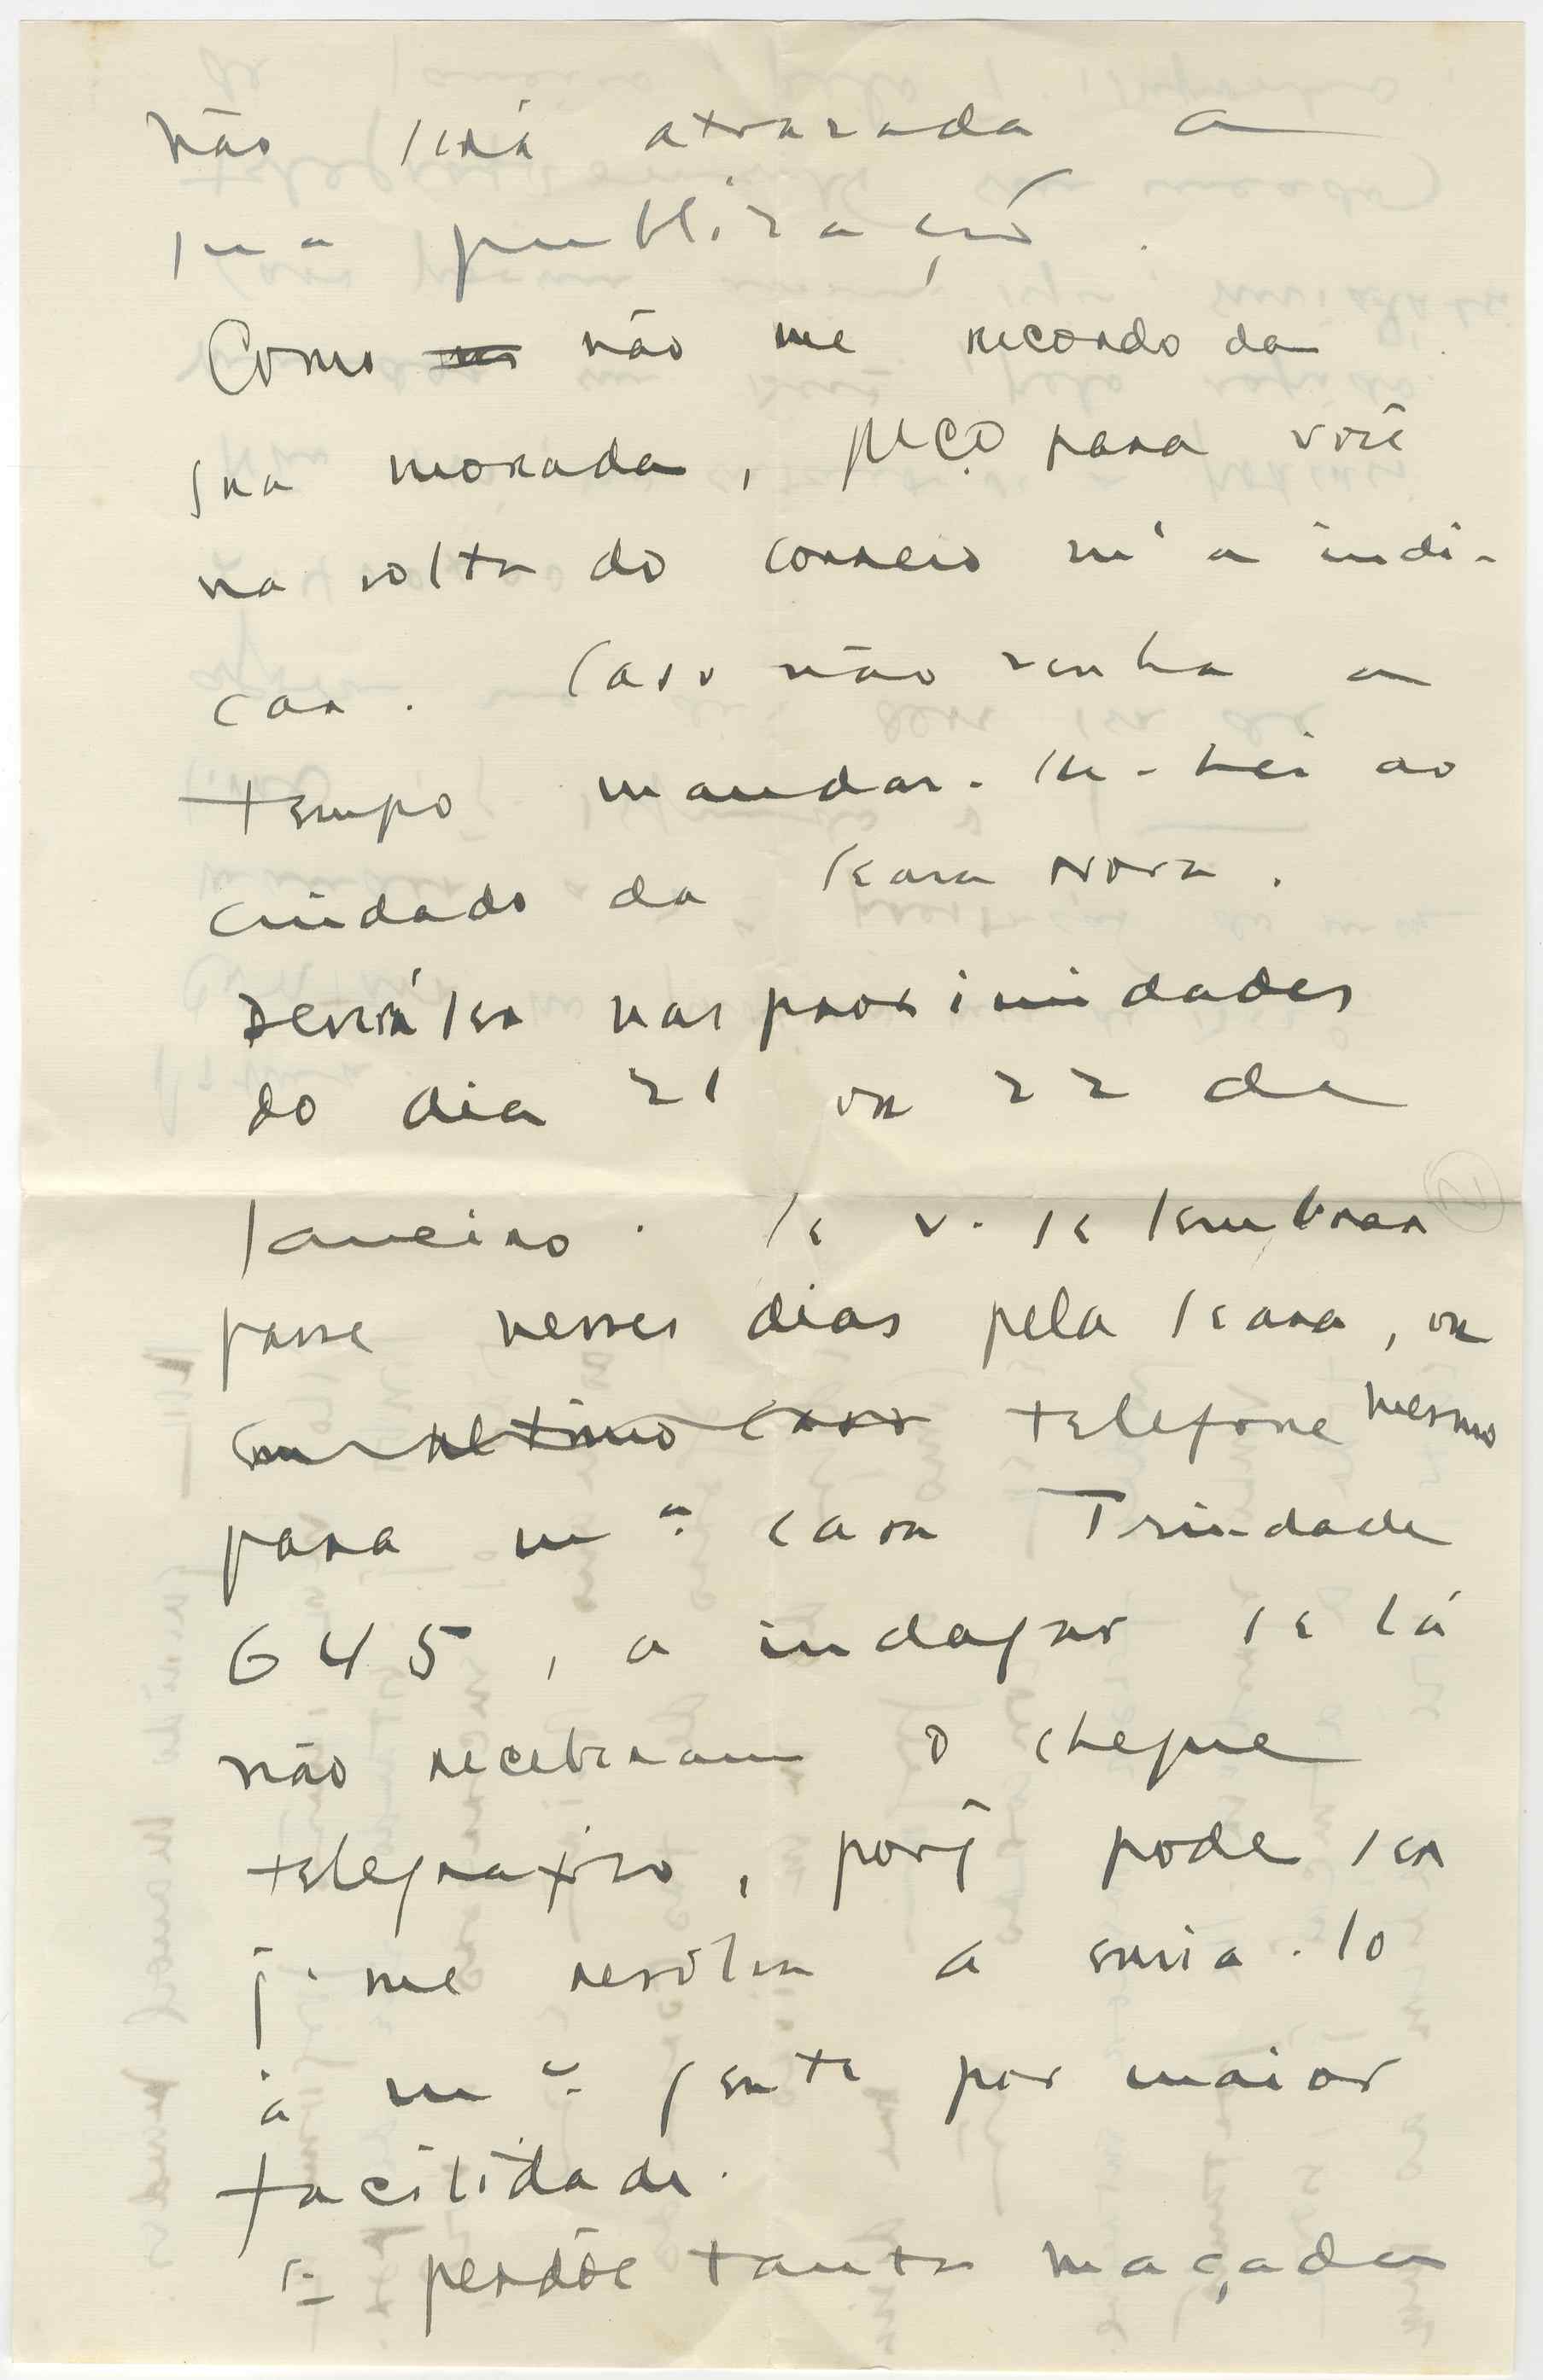 não será atrazada a
sua publicação.
Como não me recordo da
sua morada, peço para você
na volta do correio m'a indi-
car. Caso não venha a
tempo mandar-lh-hei ao
cuidado da Seara Nova.
Deverá ser nas proximidades
do dia 21 ou 22 de
Janeiro. Se v. se lembrar
passe nesses dias pela Seara, ou
em ultimo caso telefone mesmo
para mª casa Trindade
645, a indagar se lá
não receberam o cheque
telegrafico, porq̃ pode ser
q. me resolva a envia-lo
à mª gente por maior
facilidade.
E perdôe tanta maçada